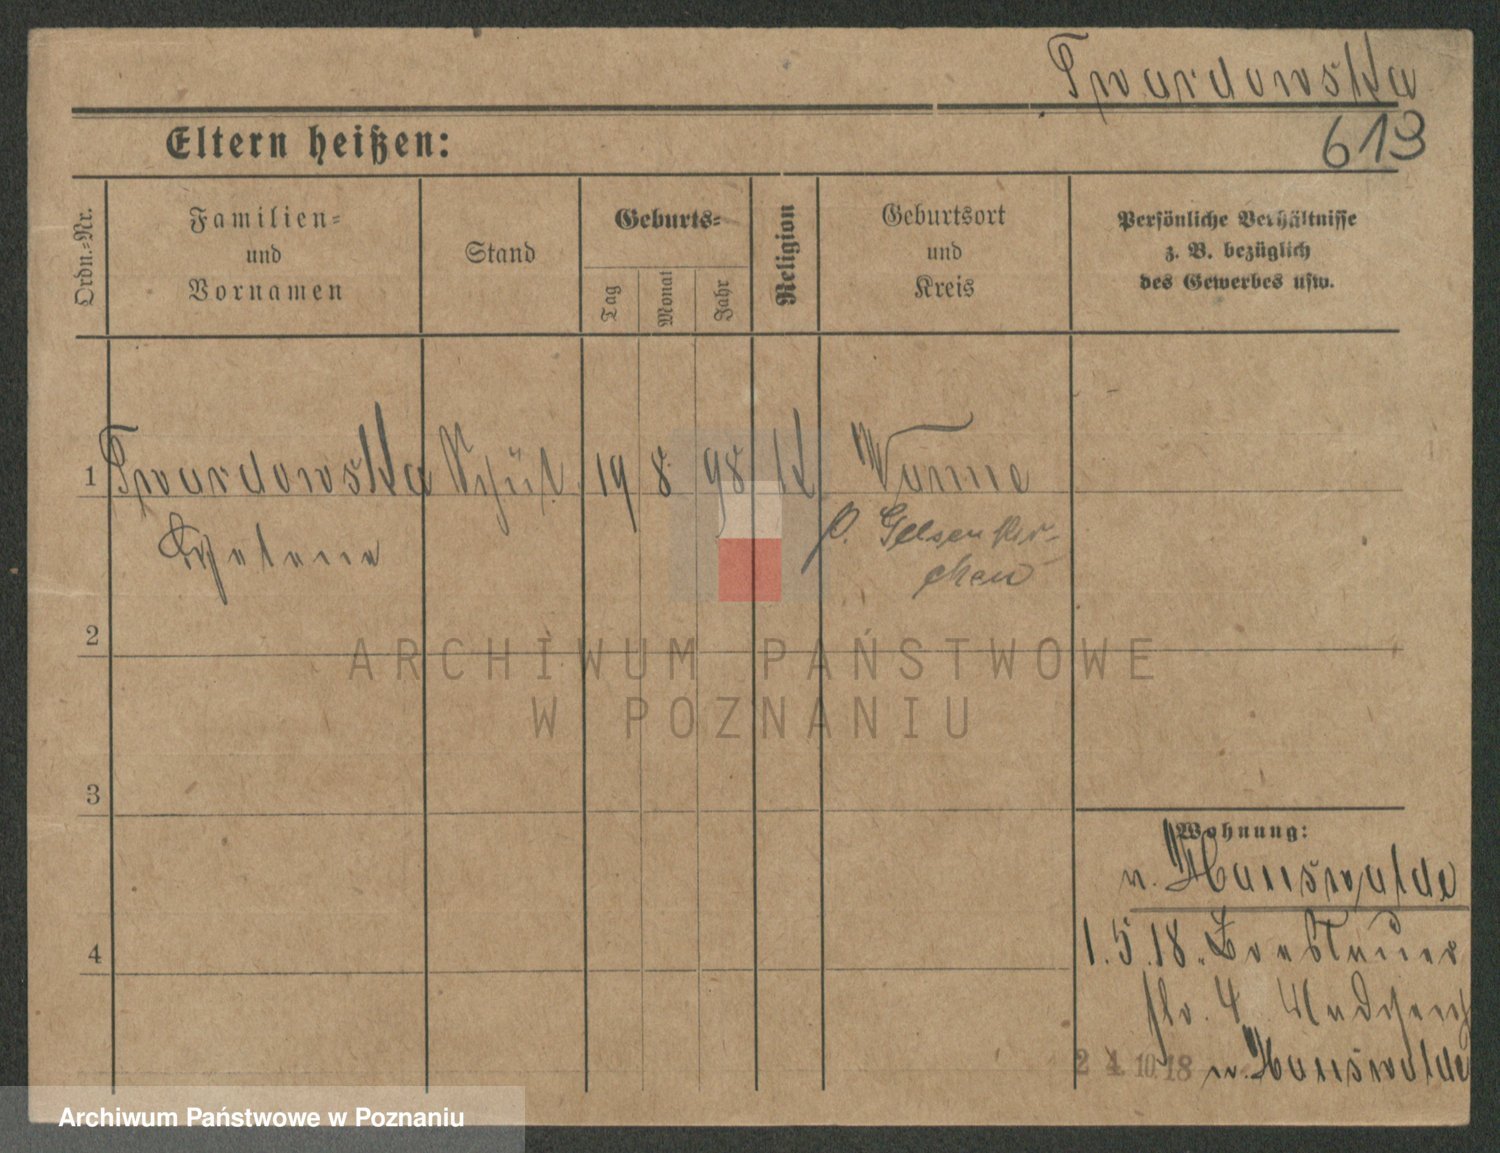 Twardowska
613
Eltern heißen:
Ordn.=Nr.
Familien=
und
Vornamen
Stand
Geburts=
Tag
Monat
Jahr
Religion
Geburtsort
und
Kreis
Persönliche Verhältnisse
z. B. bezüglich
des Gewerbes usw.
1 Twardowska 19 8 98 K Wanne
Helene
P. Gelsenkir-
chen
2
3
4
Wohnung:
v. Hanswalde
1.5.18. Breslauer
str. 4
24.10.18 n. Hanswalde
ARCHIWUM PAŃSTWOWE
W POZNANIU
Archiwum Państwowe w Poznaniu